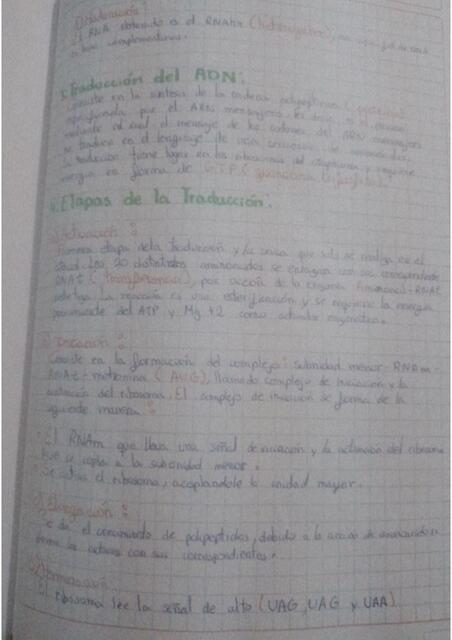 Maduración:
RNA obtenido es el RNAhn (heterogéneo),
Traducción del ADN:
Consiste en la síntesis de la cadena polipeptídica (proteína)
por el ARN mensajero, es decir, es el proceso
mediante el cual el mensaje de los codones del ARN mensajero
se traduce en el lenguaje de una secuencia de aminoácidos.
La traducción tiene lugar en los ribosomas del citoplasma y requiere
energía en forma de GTP (guanosina trifosfato).
Etapas de la Traducción:
a) Activación:
Primera etapa de la traducción y la única que solo se realiza en el
citosol. Los 20 distintos aminoácidos se enlazan con sus correspondientes
RNAt (transferencia), por acción de la enzima Aminoacil-RNAt
la reacción es una esterificación y se requiere la energía
proveniente del ATP y Mg+2 como activador enzimático.
Consiste en la formación del complejo: subunidad menor-RNAm-
RNAt-metionina (AUG), llamado complejo de iniciación y la
activación del ribosoma. El complejo de iniciación se forma de la
siguiente manera:
El RNAm que lleva una señal de iniciación y la activación del ribosoma
que se acopla a la subunidad menor.
Se activa el ribosoma, acoplandole la unidad mayor.
c) Elongación:
Se da el crecimiento de polipeptidos, debido a la acción de aminoácidos
con sus correspondientes.
ribosoma lee la señal de alto (UAG, UAG y UAA).